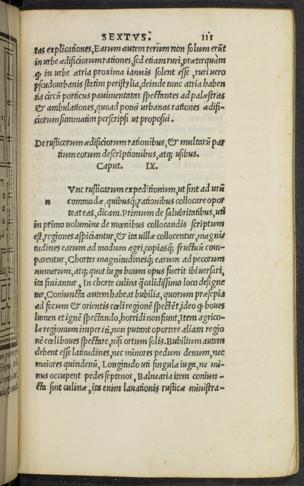 SEXTVS. 111
tas explicationes, Earum autem rerum non solum erūt
in urbe ædificiorum rationes, sed etiam ruri, præterquàm
q̈ in urbe atria proxima ianuis solent esse, ruri uero
pseudourbanis statim peristylia, deinde tunc atria haben
tia circū porticus pauimentatas spectantes ad palæstras
& ambulationes, quoad potui urbanas rationes ædifi-
ciorum summatim perscripsi ut proposui.
De rusticorum ædificiorum rationibus, & multarū par
tium eorum descriptionibus, atq; usibus.
Caput. IX.
Vnc rusticarum expeditionum, ut sint ad usū
n commodæ, quibusq; rationibus collocare opor
teat eas, dicam. Primum de salubritatibus, uti
in primo uolumine de mœnibus collocandis scriptum
est, regiones aspiciantur, & ita uillæ collocentur, magni
tudines earum ad modum agri, copiasq; fructuū com-
parentur, Chortes magnitudinesq; earum ad pecorum
numerum, atq; quot iuga boum opus fuerit ibi uersari,
ita finiantur, In chorte culina q̃calidissimo loco designe
tur, Coniuncta autem habeat bubilia, quorum præsepia
ad focum & orientis cœli regionē spectēt, ideo q̇ boues
lumen et ignē spectando, horridi non fiunt, item agrico-
læ regionum imperiti, non putant oportere aliam regio
nē cœli boues spectare, nisi ortum solis. Bubilium autem
debent esse latitudines, nec minores pedum denum, nec
maiores quindenū, Longitudo uti singula iuga, ne mi-
nus occupent pedes septenos, Balnearia item coniun-
cta sint culinæ, ita enim lauationis rusticæ ministra-